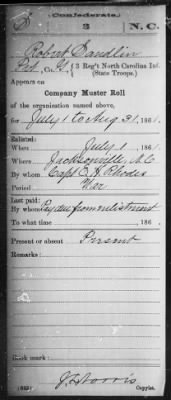 S
Confederate.
3
N.C.
Robert Sandlin
Pvt, Co. G, 3 Reg't North Carolina Inf.
(State Troops.)
Appears on
Company Muster Roll
of the organization named above,
for July 1 to Aug 31, 1861.
Enlisted:
When July 1, 1861
Where Jacksonville, N.C.
By whom Capt E. H. Rhodes
Period War
Last paid:
By whom Pay due from enlistment
To what time , 186
Present or absent Present
Remarks:
Book mark:
J. E. Norris
Copyist.